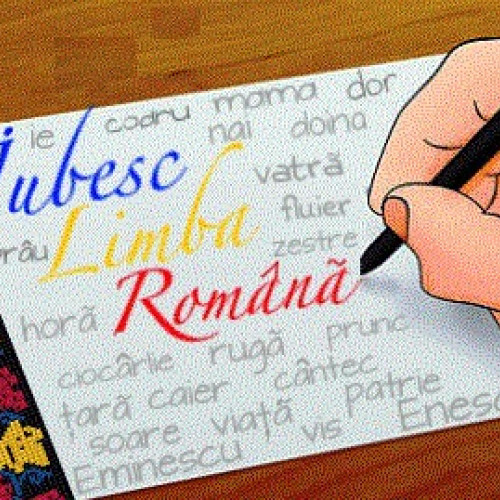 ie codru mama dor
nai doina
Iubesc
vatră
Limba
fluier
râu
zestre
Română
horă
prunc
ciocârlie rugă
cântec
țară caier
patrie
soare viață
vis
Eminescu